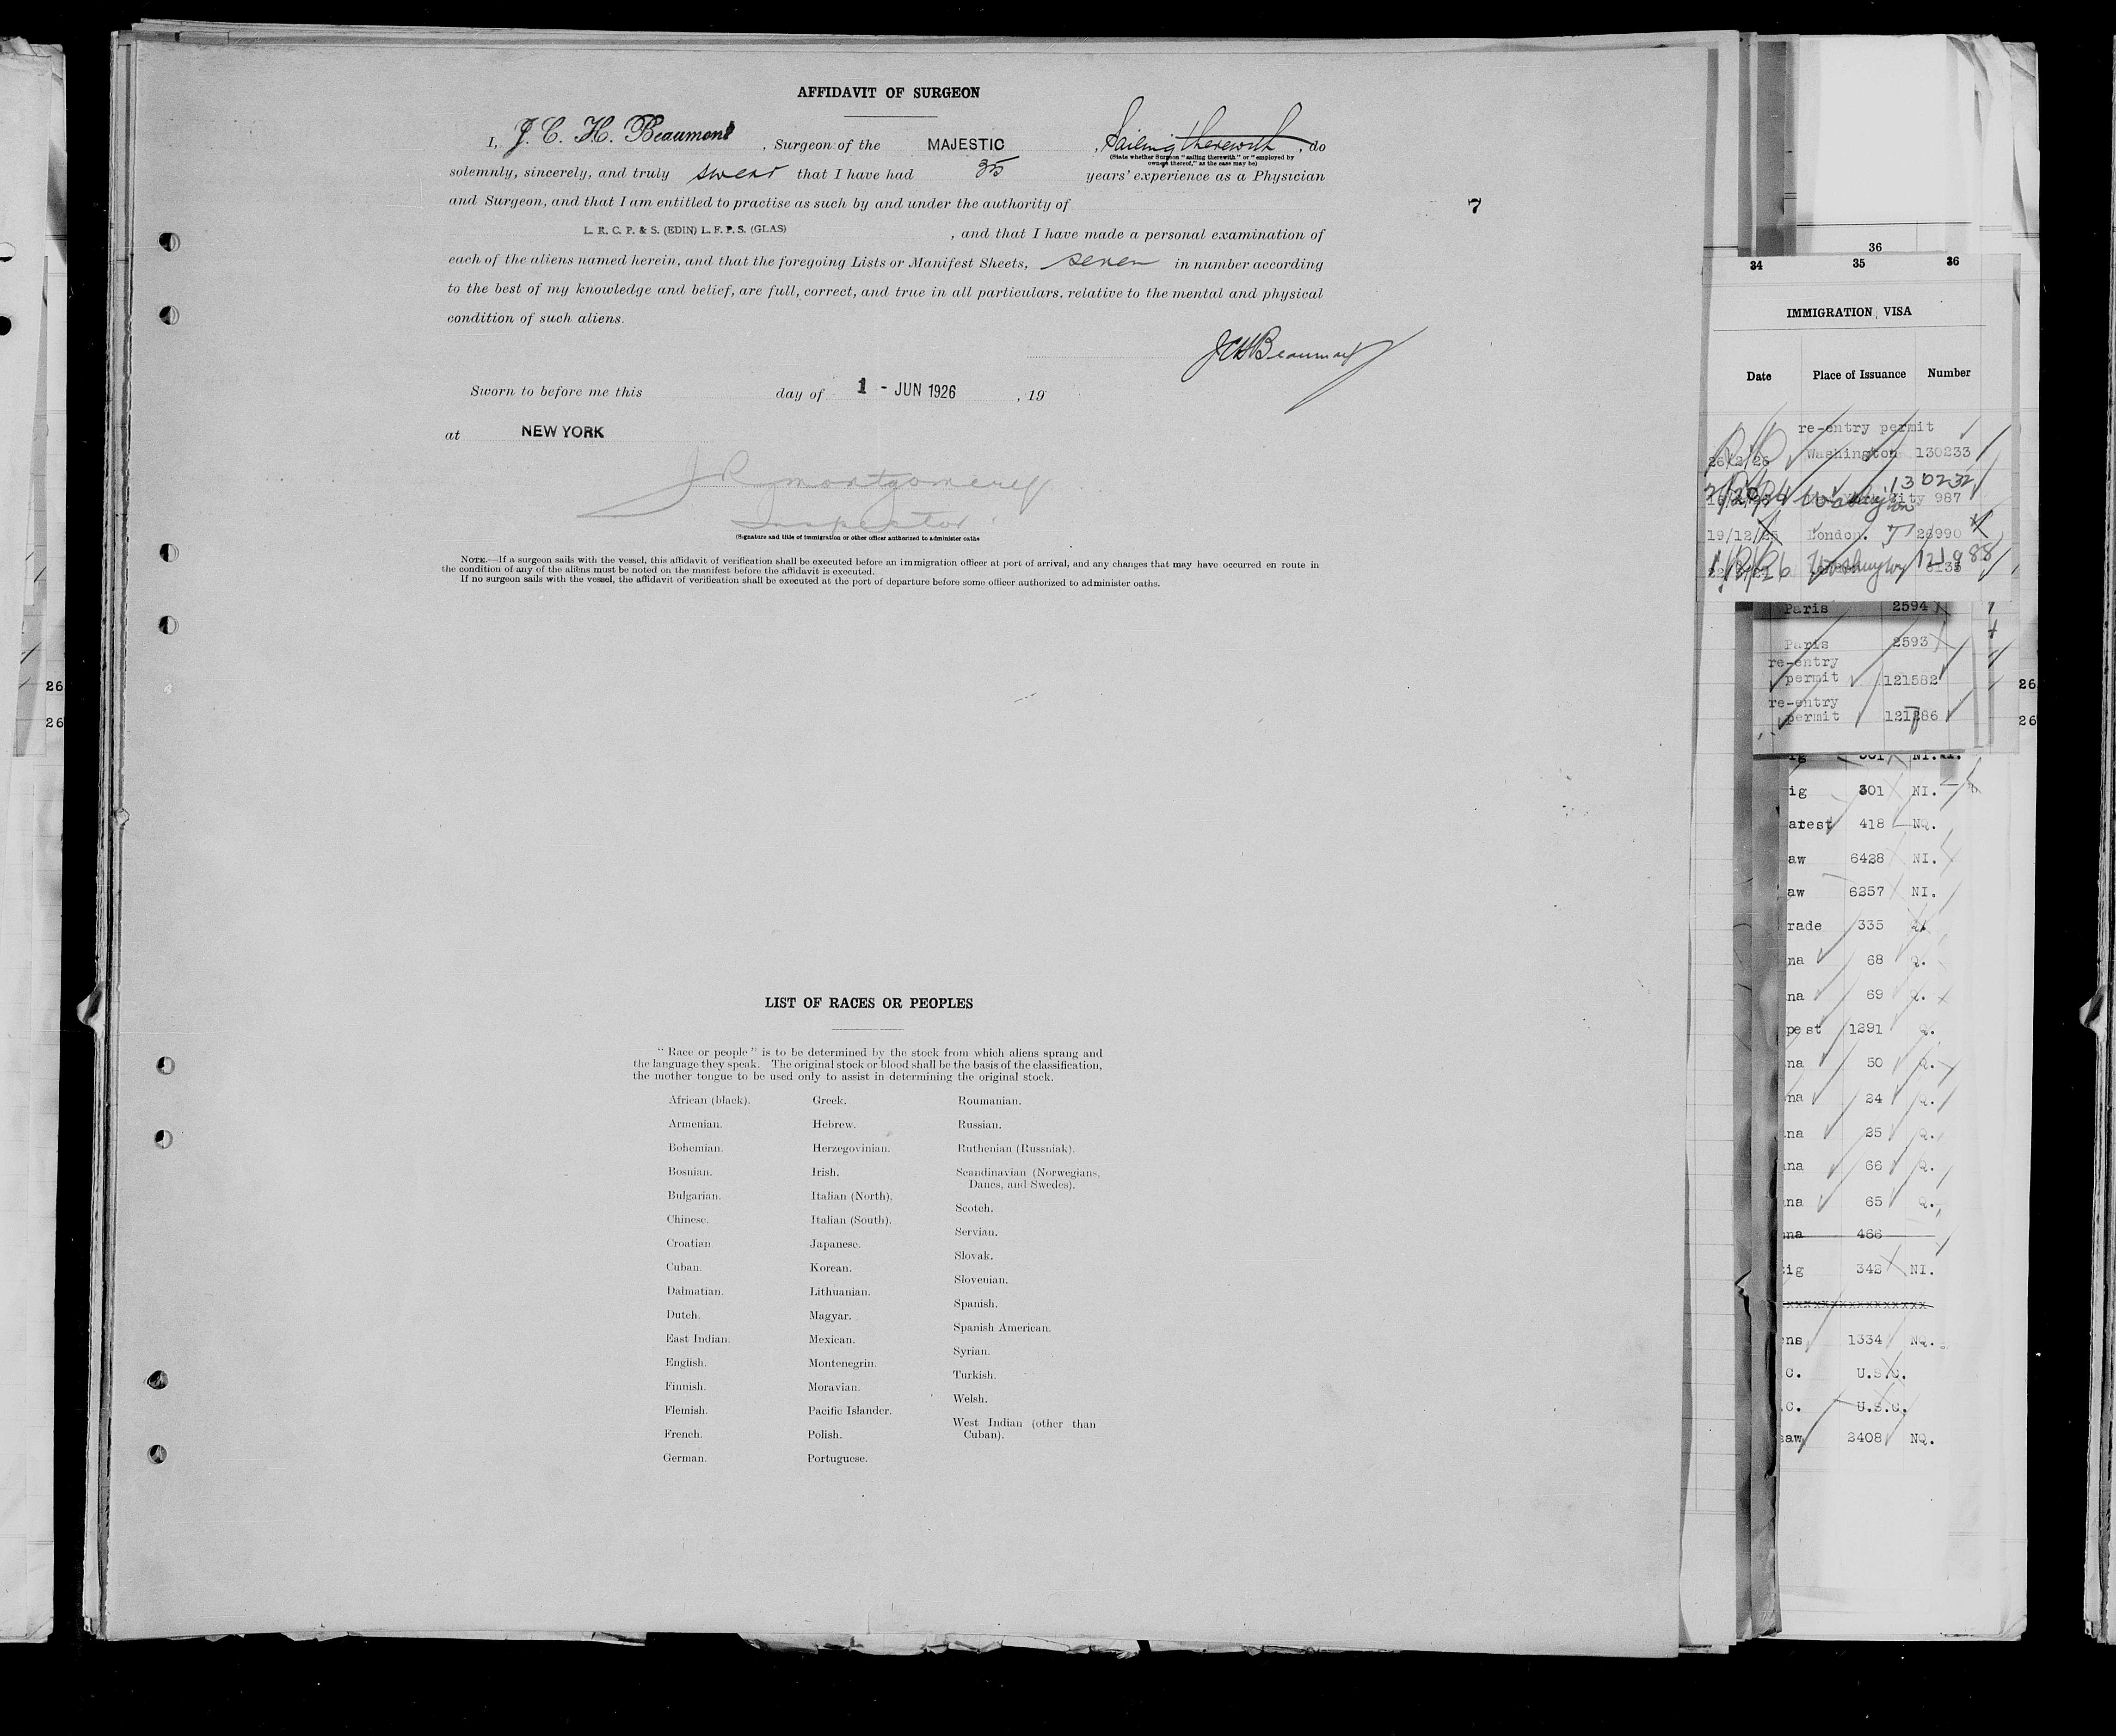 AFFIDAVIT OF SURGEON
I, J. C. H. Beaumont, Surgeon of the MAJESTIC, Sailing therewith, do
(State whether Surgeon "sailing therewith" or "employed by
owners thereof," as the case may be)
solemnly, sincerely, and truly swear that I have had 35 years' experience as a Physician
and Surgeon, and that I am entitled to practise as such by and under the authority of
7
L. R. C. P. & S. (EDIN) L. F. P. S. (GLAS), and that I have made a personal examination of
each of the aliens named herein, and that the foregoing Lists or Manifest Sheets, seven in number according
to the best of my knowledge and belief, are full, correct, and true in all particulars, relative to the mental and physical
condition of such aliens.
JCHBeaumont
Sworn to before me this day of 1 - JUN 1926, 19
at NEW YORK
J R Montgomery
Inspector
(Signature and title of immigration or other officer authorized to administer oaths
NOTE.—If a surgeon sails with the vessel, this affidavit of verification shall be executed before an immigration officer at port of arrival, and any changes that may have occurred en route in
the condition of any of the aliens must be noted on the manifest before the affidavit is executed.
If no surgeon sails with the vessel, the affidavit of verification shall be executed at the port of departure before some officer authorized to administer oaths.
LIST OF RACES OR PEOPLES
"Race or people" is to be determined by the stock from which aliens sprang and
the language they speak. The original stock or blood shall be the basis of the classification,
the mother tongue to be used only to assist in determining the original stock.
African (black).
Armenian.
Bohemian.
Bosnian.
Bulgarian.
Chinese.
Croatian
Cuban.
Dalmatian.
Dutch.
East Indian.
English.
Finnish.
Flemish.
French.
German.
Greek.
Hebrew.
Herzegovinian.
Irish.
Italian (North).
Italian (South).
Japanese.
Korean.
Lithuanian.
Magyar.
Mexican.
Montenegrin.
Moravian.
Pacific Islander.
Polish.
Portuguese.
Roumanian.
Russian.
Ruthenian (Russniak).
Scandinavian (Norwegians,
Danes, and Swedes).
Scotch.
Servian.
Slovak.
Slovenian.
Spanish.
Spanish American.
Syrian.
Turkish.
Welsh.
West Indian (other than
Cuban).
36
34 35 36
IMMIGRATION VISA
Date Place of Issuance Number
re-entry permit
26/2/26 Washington 130233
130232
987
19/12/25 London. 26990
Washington 121988
Paris 2594
Paris 2593
re-entry
permit 121582
re-entry
permit 121286
26
26
26
26
ig 301 NI.
arest 418 NQ.
aw 6428 NI.
aw 6257 NI.
rade 335
na 68 Q.
na 69 Q.
pest 1291 Q.
na 50 Q.
na 24 Q.
na 25 Q.
na 66 Q.
na 65 Q.
na 466
ig 342 NI.
xxxxxxxxxxxxxxxxx
ns 1334 NQ.
C. U.S.C.
.C. U.S.C.
saw 2408 NQ.